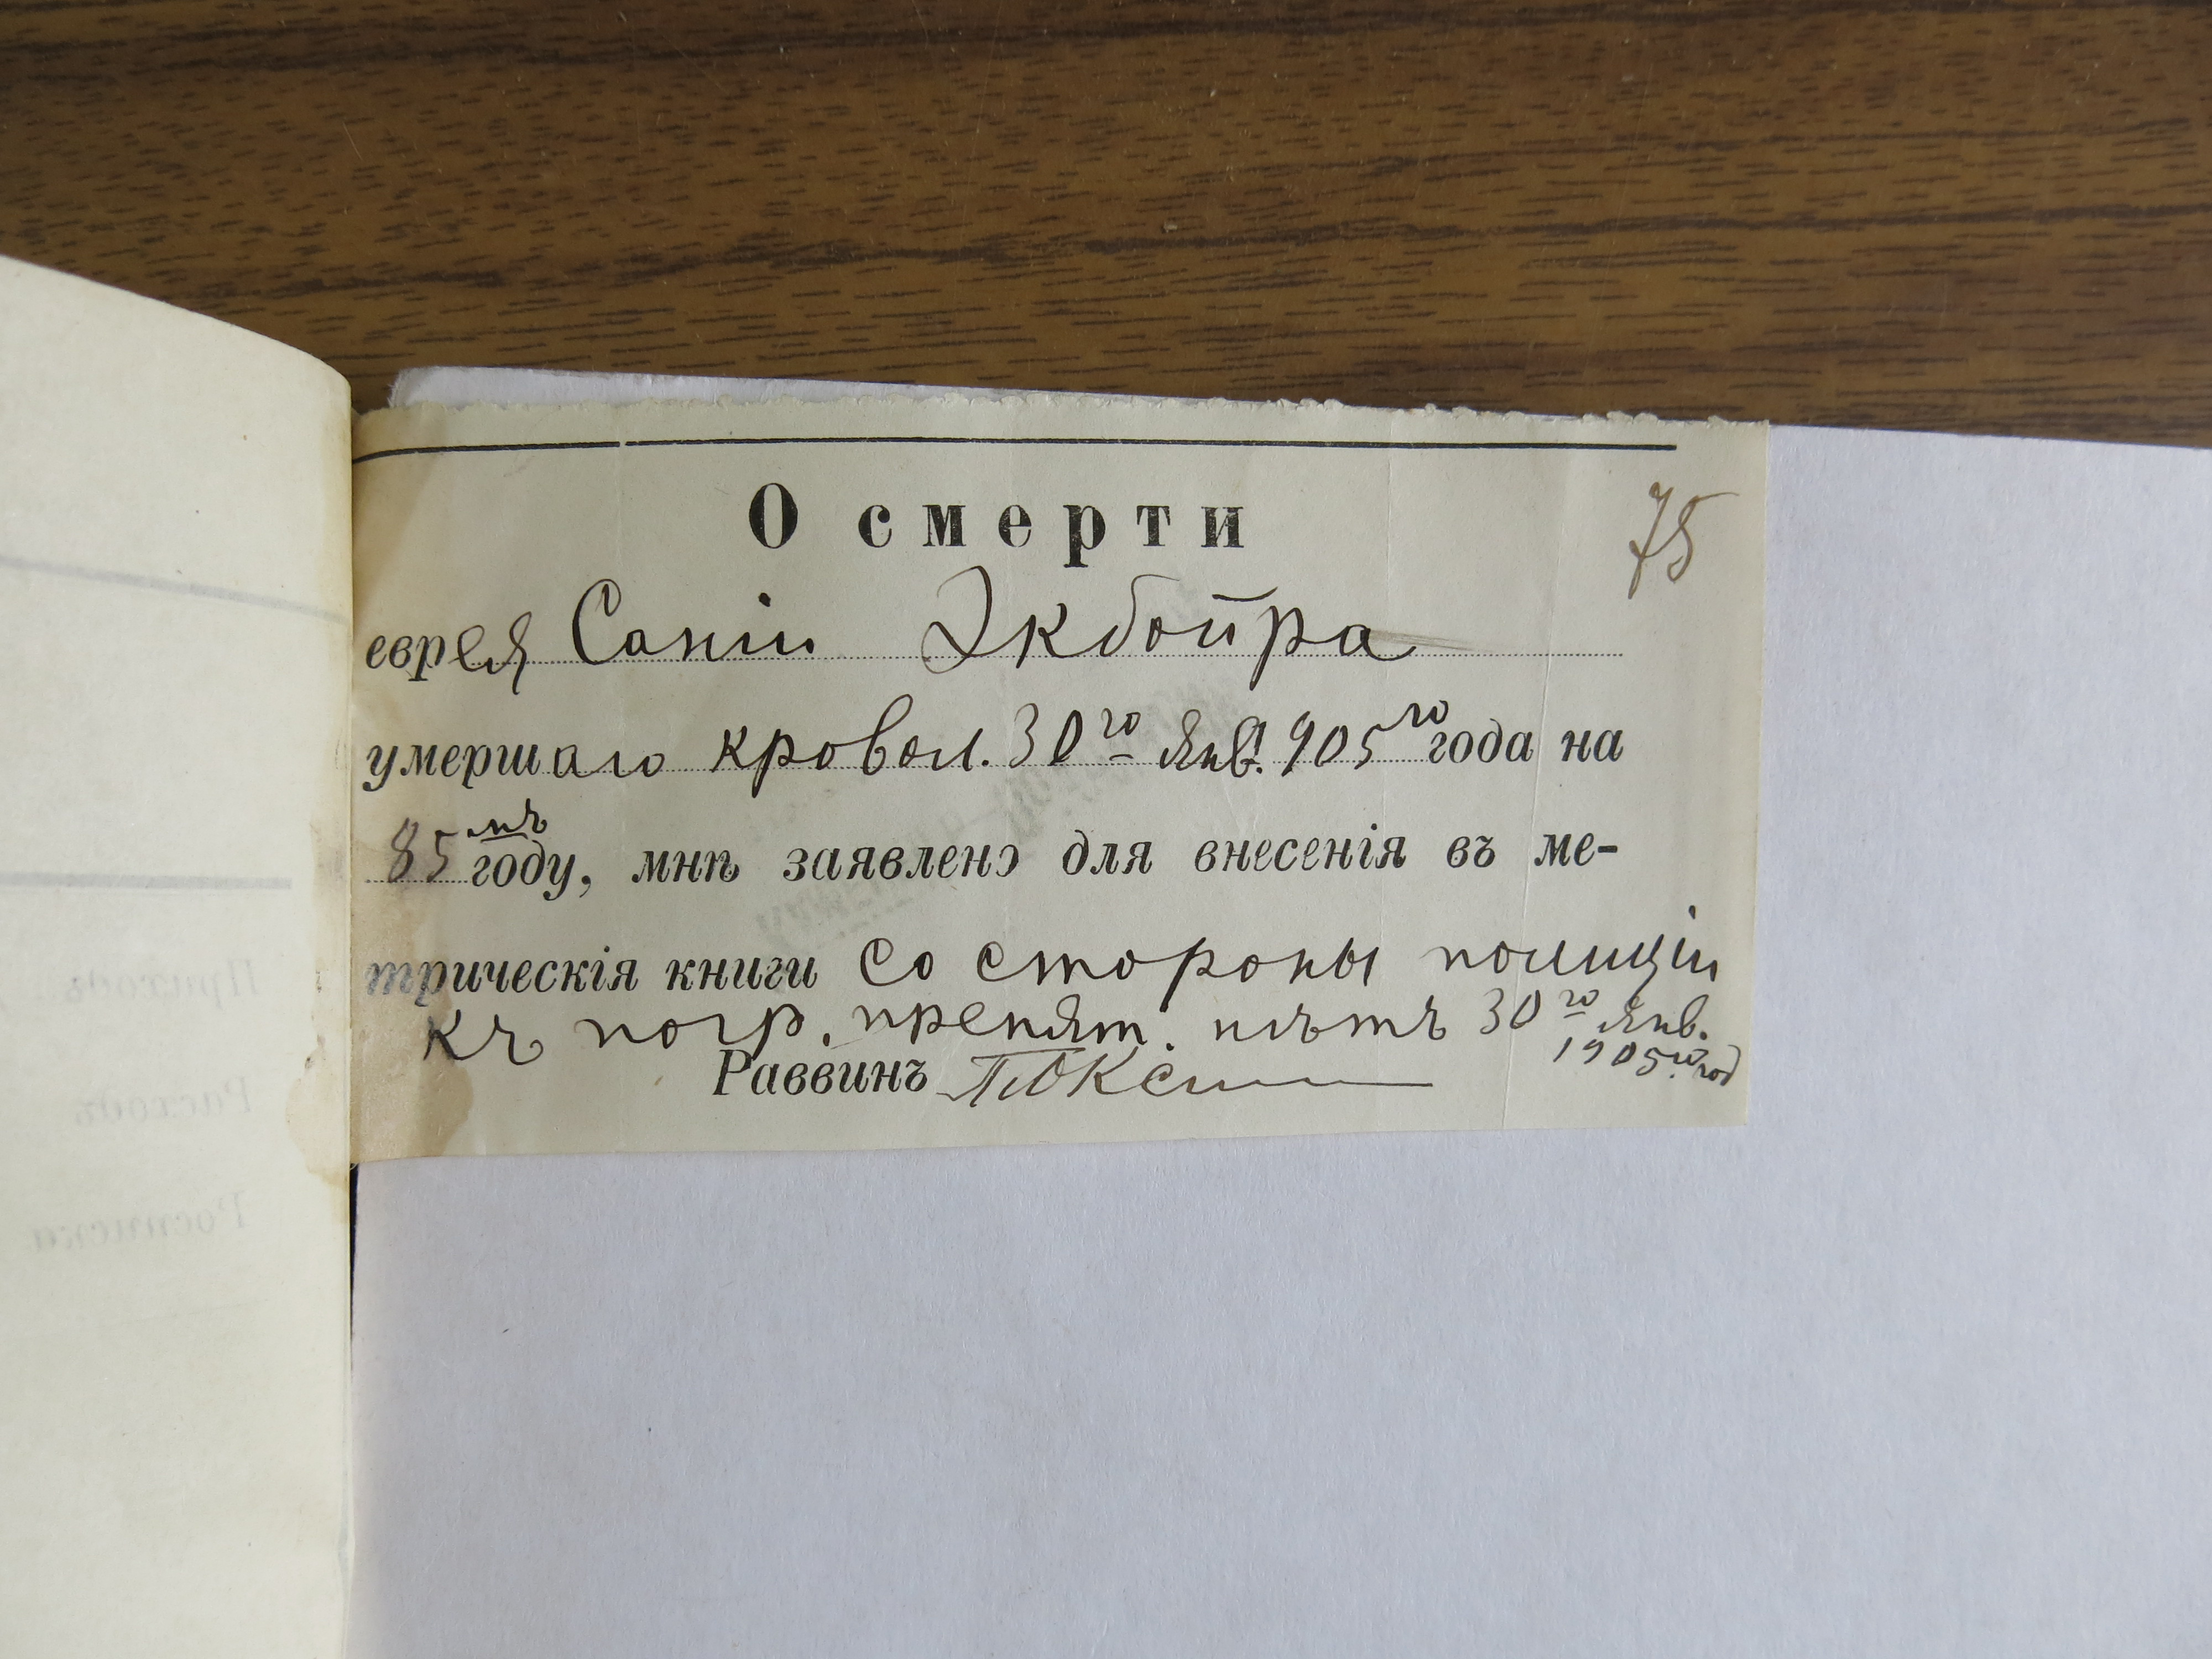 О смерти
75
еврея Саніи Экбойра
умершаго кровои. 30го Янв. 905го года на
85мъ году, мнѣ заявлено для внесенія въ ме-
трическія книги Со стороны полиціи
къ погр. препят. нѣтъ 30го Янв.
1905го год
Раввинъ
Приходъ
Расходъ
Росписка